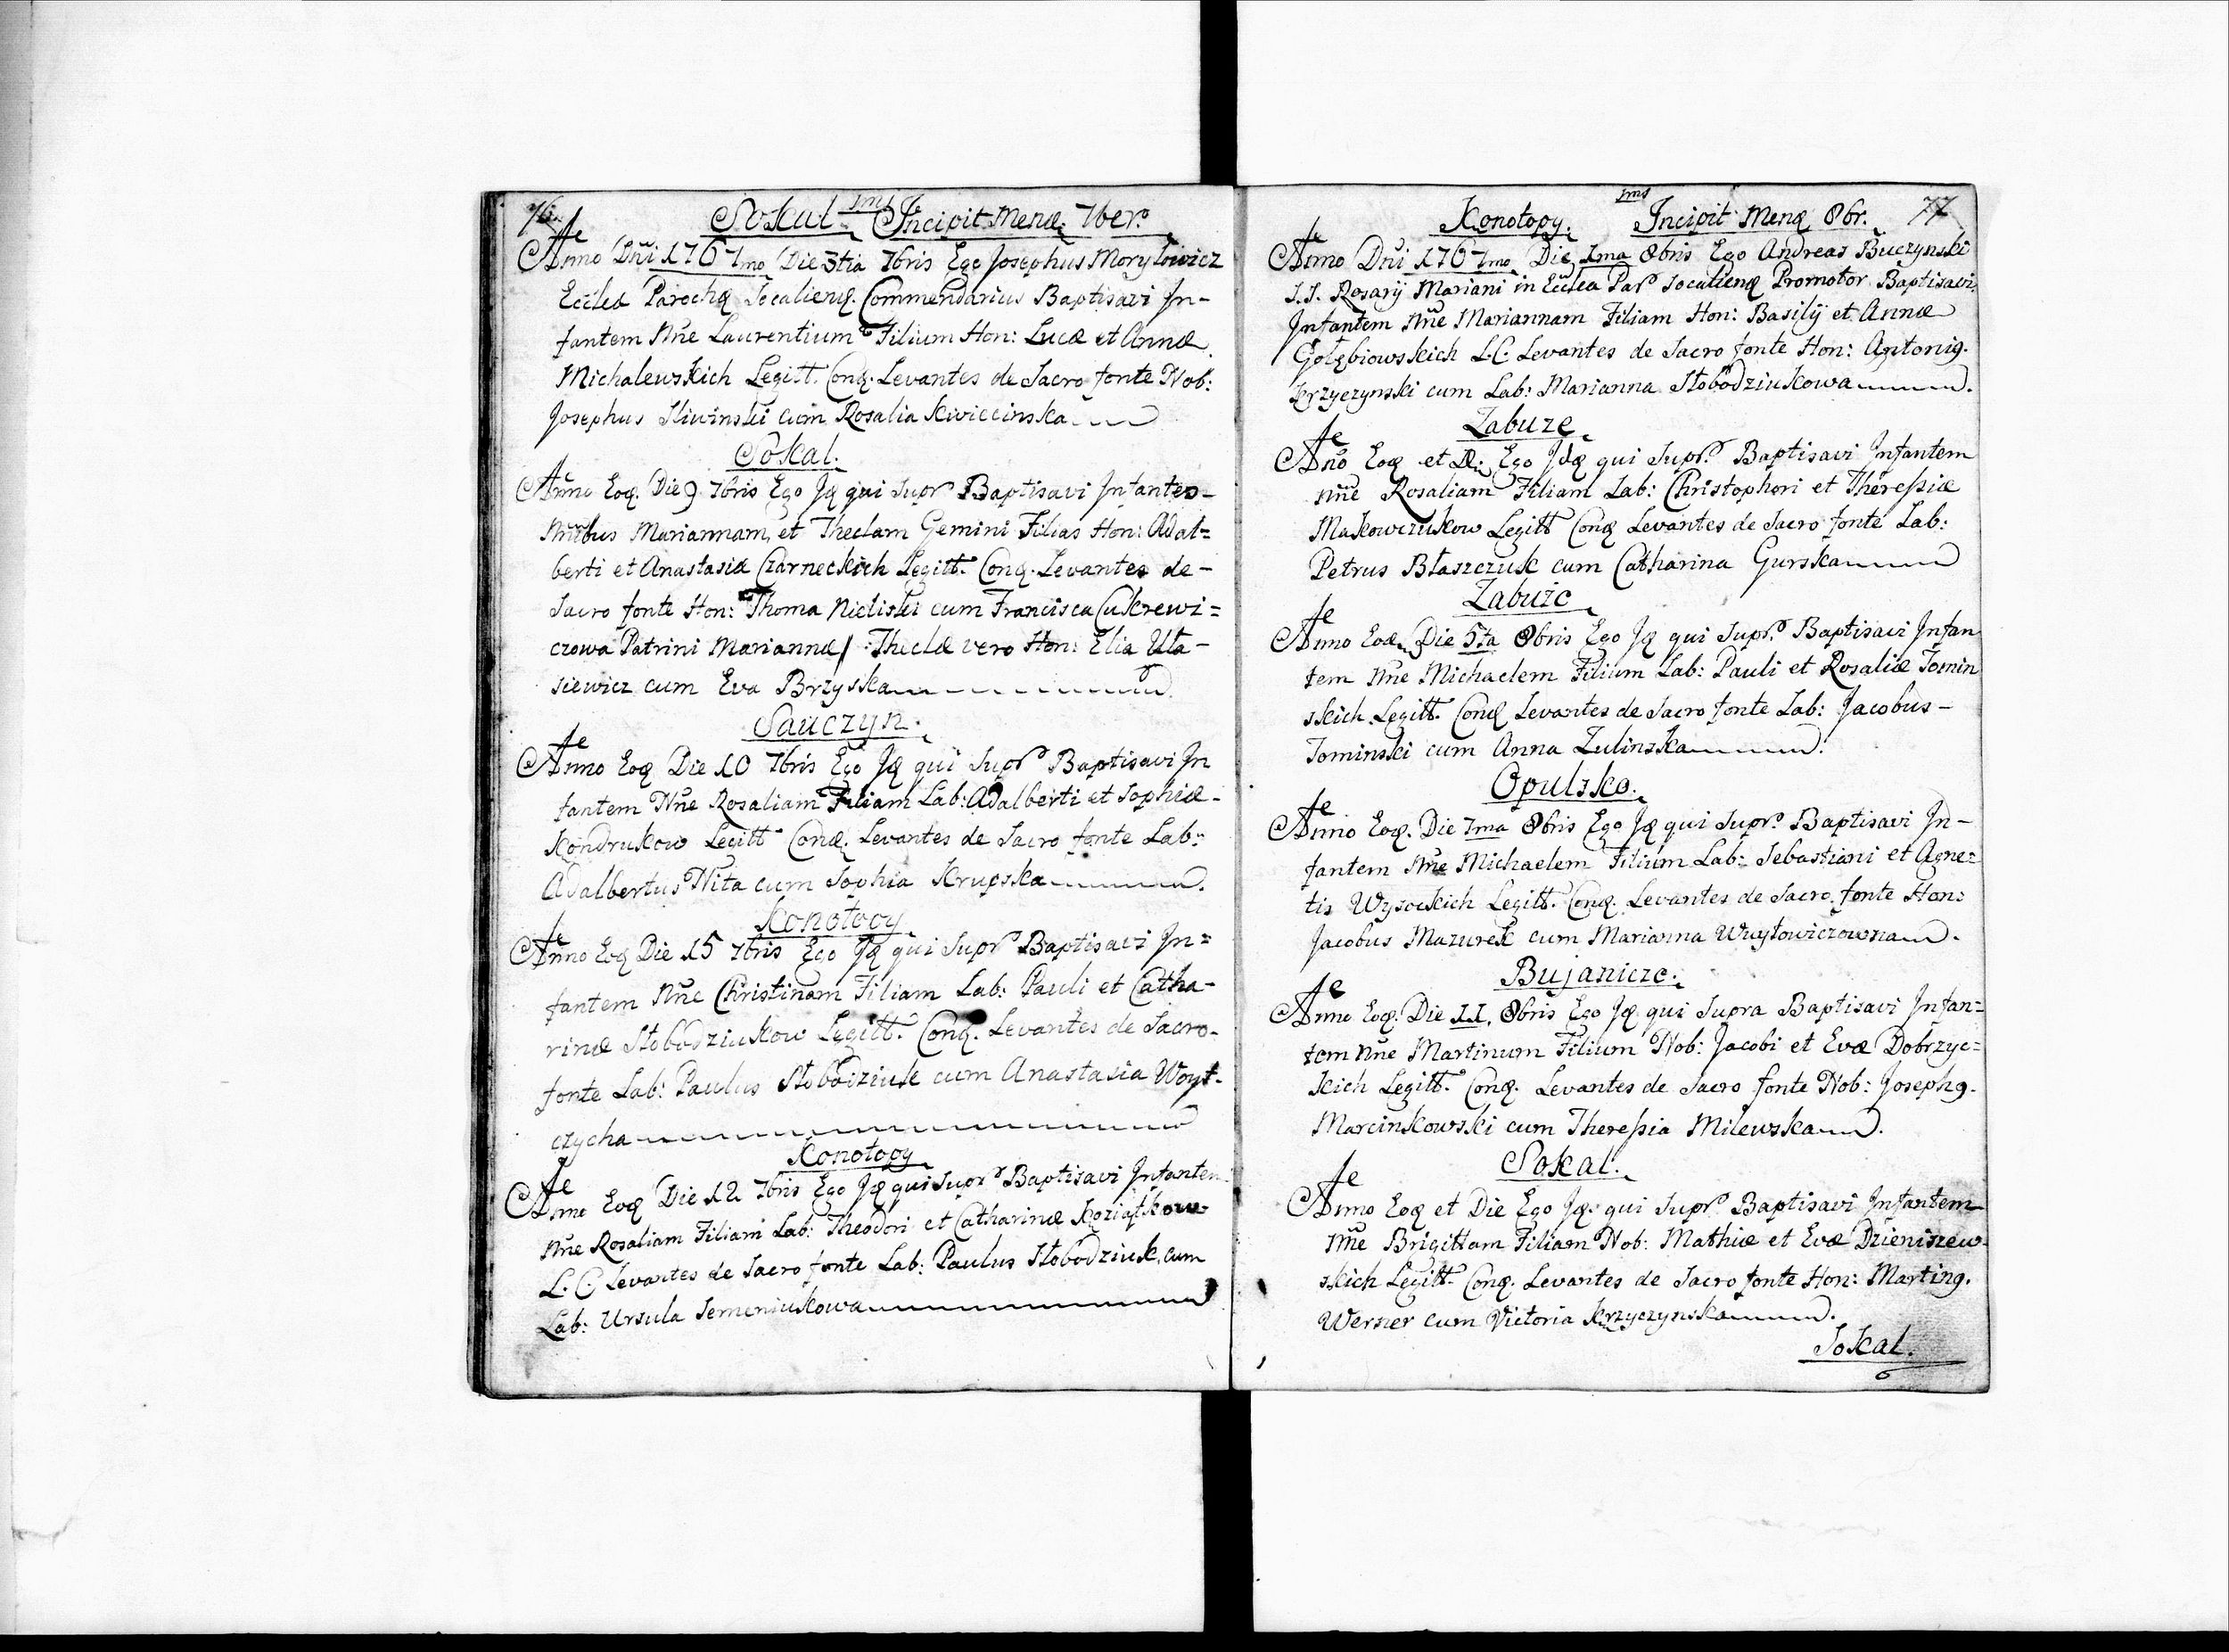 76.
Sokal. Incipit Mensę 7ber.
Anno Dñi 1767mo Die 3tia 7bris Ego Josephus Moryłowicz
Ecclea Parochę Socalienę. Commendarius Baptisavi In-
fantem Nñe Laurentium Filium Hon: Lucæ et Annæ
Michalewskich Legitt. Conę. Levantes de Sacro fonte Nob:
Josephus Sliwinski cum Rosalia Kwiecinska
Sokal.
Anno Eoę. Die 9 7bris Ego Ję qui Supr. Baptisavi Infantes-
Nñibus Mariannam, et Theclam Gemini Filias Hon: Adal=
berti et Anastasiæ Czarneckich Legitt. Conę. Levantes de-
Sacro fonte Hon: Thoma Nieliski cum Francisca Cukrewi=
czowa Patrini Mariannæ/ :Theclæ vero Hon: Elia Uła-
siewicz cum Eva Brzyska
Sauczyn.
Anno Eoę Die 10 7bris Ego Ję qui Supr Baptisavi In
fantem Nñe Rosaliam Filiam Lab: Adalberti et Sophiæ-
Kondrukow Legitt Conę. Levantes de Sacro fonte Lab:
Adalbertus Nita cum Sophia Krupska
Konotopy
Anno Eoę Die 15 7bris Ego Ję qui Supr Baptisavi In=
fantem Nñe Christinam Filiam Lab: Pauli et Catha-
rinæ Słobodziukow Legitt. Conę. Levantes de Sacro-
fonte Lab: Paulus Słobodziuk cum Anastasia Woyt-
czycha
Konotopy
Anno Eoę Die 12 7bris Ego Ję qui Supr Baptisavi Infantem
Nñe Rosaliam Filiam Lab: Theodori et Catharinæ Koziatkow
L. C. Levantes de Sacro fonte Lab: Paulus Słobodziuk cum
Lab: Ursula Semeniukowa
Konotopy. Incipit Mensę 8br. 77
Anno Dñi 1767mo Die 1ma 8bris Ego Andreas Buczynski
S.S. Rosarij Mariani in Ecclea Par Socalienę Promotor Baptisavi
Infantem Nñe Mariannam Filiam Hon: Basilij et Annæ
Gołębiowskich L.C. Levantes de Sacro fonte Hon: Antonig.
Krzyczynski cum Lab: Marianna Słobodziukowa.
Zabuze
Año Eoę et D: Ego Jdę qui Supr. Baptisavi Infantem
Nñe Rosaliam Filiam Lab: Christophori et Theressiæ
Makowczukow Legitt Conę Levantes de Sacro fonte Lab:
Petrus Błaszczuk cum Catharina Gurska
Zabuże
Anno Eoę. Die 5ta 8bris Ego Ję qui Supr. Baptisavi Infan
tem Nñe Michaelem Filium Lab: Pauli et Rosaliæ Tomin
skich Legitt. Conę Levantes de Sacro fonte Lab: Jacobus-
Tominski cum Anna Zulinska.
Opulsko.
Anno Eoę. Die 7ma 8bris Ego Ję qui Supr. Baptisavi In-
fantem Nñe Michaelem Filium Lab: Sebastiani et Agne=
tis Wysockich Legitt. Conę. Levantes de Sacro fonte Hon:
Jacobus Mazurek cum Marianna Wuytowiczowna.
Bujanicze.
Anno Eoę. Die 11. 8bris Ego Ję qui Supra Baptisavi Infan=
tem Nñe Martinum Filium Nob: Jacobi et Evæ Dobrzyc=
kich Legitt. Conę. Levantes de Sacro fonte Nob: Josephg.
Marcinkowski cum Theressia Milewska.
Sokal.
Anno Eoę et Die Ego Ję. qui Supr. Baptisavi Infantem
Nñe Brigittam Filiam Nob: Mathiæ et Evæ Dzieniszew-
skich Legitt. Conę. Levantes de Sacro fonte Hon: Marting.
Werner cum Victoria Krzyczynska.
Sokal.